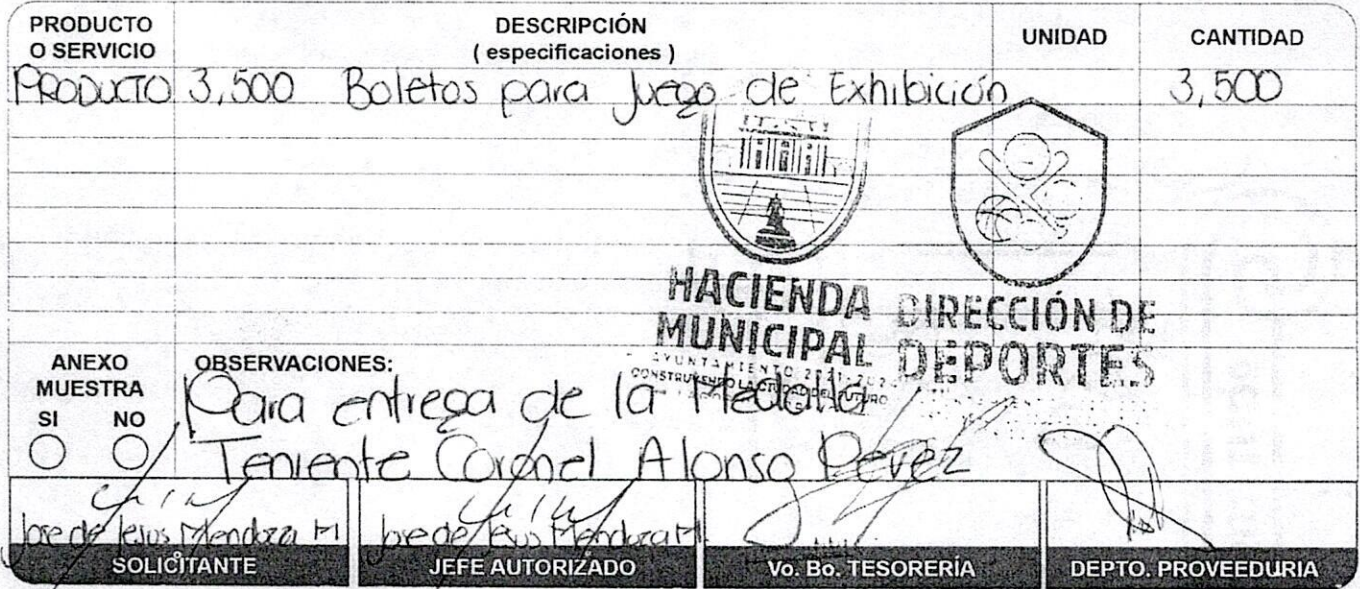 PRODUCTO O SERVICIO
DESCRIPCIÓN
( especificaciones )
UNIDAD
CANTIDAD
PRODUCTO 3,500 Boletos para Juego de Exhibición 3,500
HACIENDA
MUNICIPAL
AYUNTAMIENTO
CONSTRUYENDO LA CIUDAD DEL FUTURO
DIRECCIÓN DE
DEPORTES
ANEXO
MUESTRA
SI NO
OBSERVACIONES:
Para entrega de la Medalla
Teniente Coronel Alonso Perez
Jose de Jesus Mendoza M
Jose de Jesus Mendoza M
SOLICITANTE
JEFE AUTORIZADO
Vo. Bo. TESORERÍA
DEPTO. PROVEEDURIA